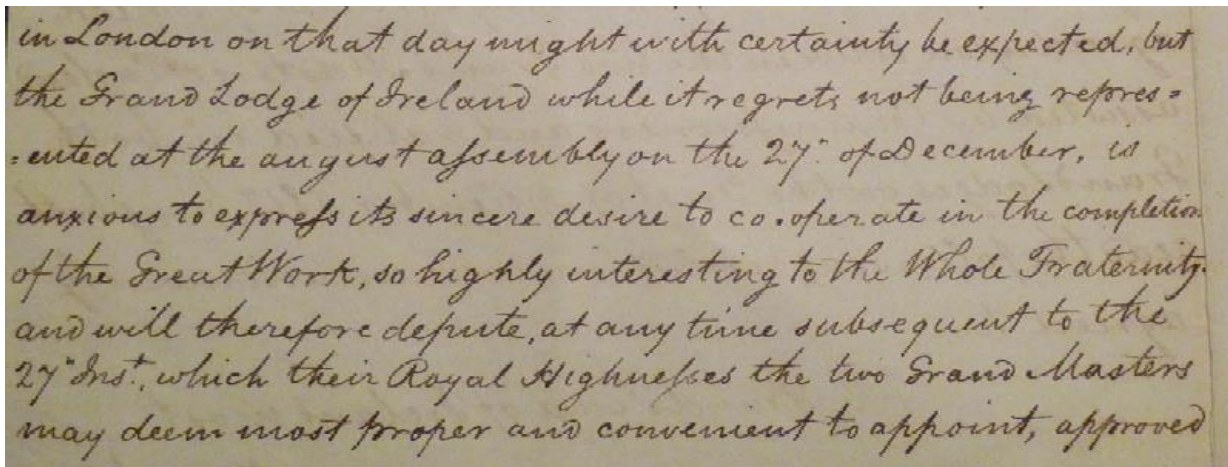 in London on that day might with certainty be expected, but
the Grand Lodge of Ireland while it regrets not being repres=
=ented at the august aſsembly on the 27th of December, is
anxious to expreſs its sincere desire to co.operate in the completion
of the Great Work, so highly interesting to the Whole Fraternity.
and will therefore depute, at any time subsequent to the
27th Inst., which their Royal Highneſses the two Grand Masters
may deem most proper and convenient to appoint, approved